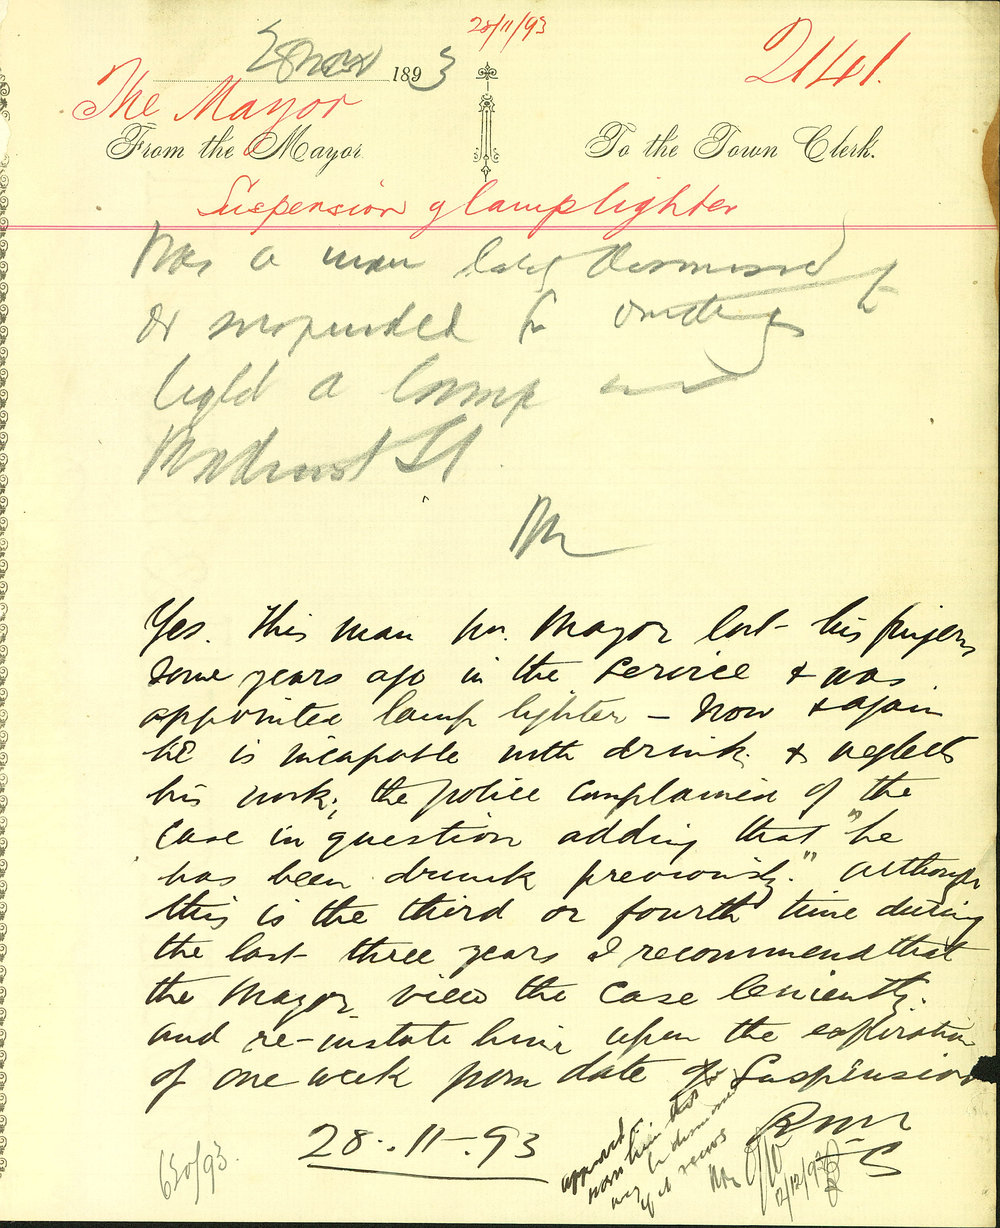 28/11/93
28 Nov 1893
2141.
The Mayor
From the Mayor
To the Town Clerk.
Suspension of lamplighter
Was a man lately dismissed
or suspended for omitting to
light a lamp in
St
Yes. This man Mr. Mayor lost his fingers
some years ago in the service & was
appointed lamp lighter – Now & again
he is incapable with drink & neglects
his work; the police complained of the
case in question adding that "he
has been drunk previously." Although
this is the third or fourth time during
the last three years I recommend that
the Mayor view the case leniently.
and re-instate him upon the expiration
of one week from date of suspension
28.11.93
CS
650/93
approved
warn him that he
may be dismissed
if it recurs
2/12/93